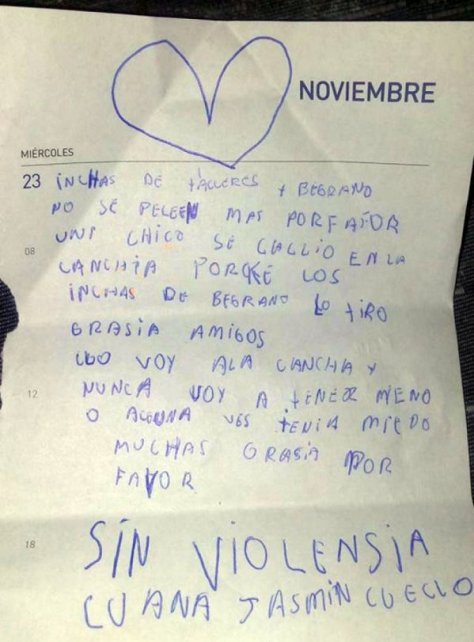 NOVIEMBRE
MIÉRCOLES
23 INCHAS DE TALLERES Y BEGRANO
NO SE PELEEN MAS PORFAFOR
08 UNI CHICO SE CALLIO EN LA
CANCHIA PORKE LOS
INCHAS DE BEGRANO LO TIRO
GRASIA AMIGOS
LLO VOY ALA CANCHA Y
12 NUNCA VOY A TENER MIENO
O ALGUNA VES TENIA MIEDO
MUCHAS GRASIA POR
FAVOR
18 SIN VIOLENSIA
LUANA JASMIN CUELLO